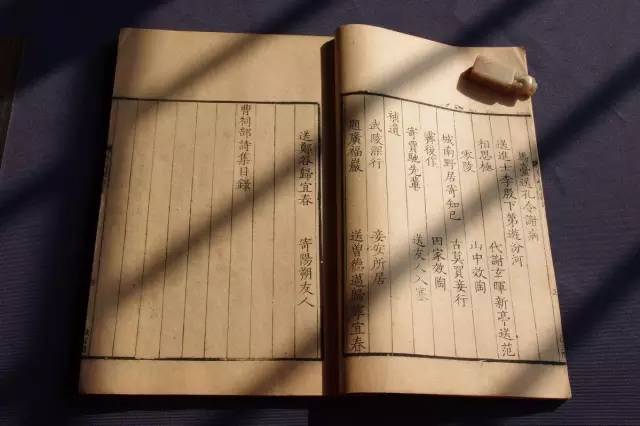 馬臺送孔令謝病
送進士李殷下第遊汾河
相思極 代謝玄暉新亭送范
零陵 山中效陶
城南野居寄知已 古莫買妾行
霽後作 田家效陶
寄賈馳先輩 送友人入塞
補遺
武陵深行 妾安所居
題廣福巖 送曾德邁歸寧宜春
送鄭谷歸宜春 寄陽朔友人
曹祠部詩集目錄